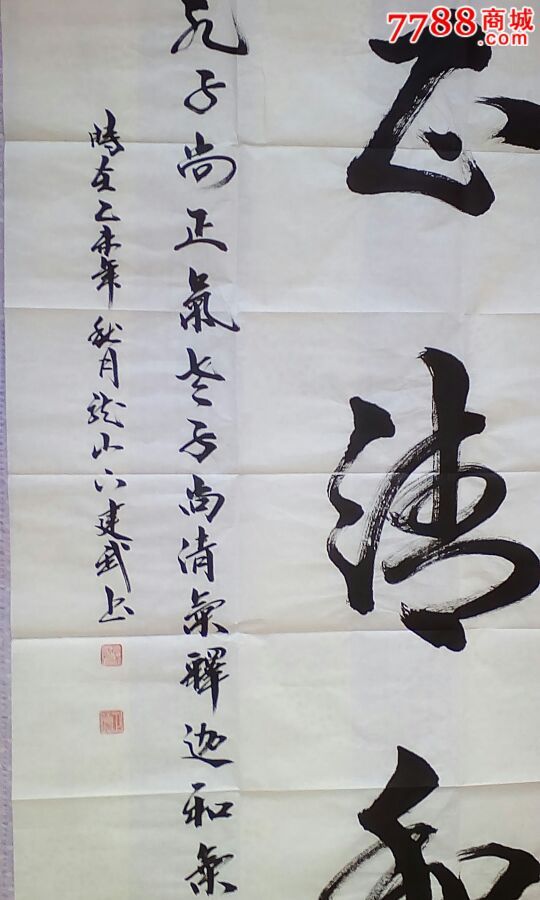 7788商城
.com
正清和
孔子尚正氣老子尚清氣釋迦和氣
時在乙未年秋月龍山下建武上